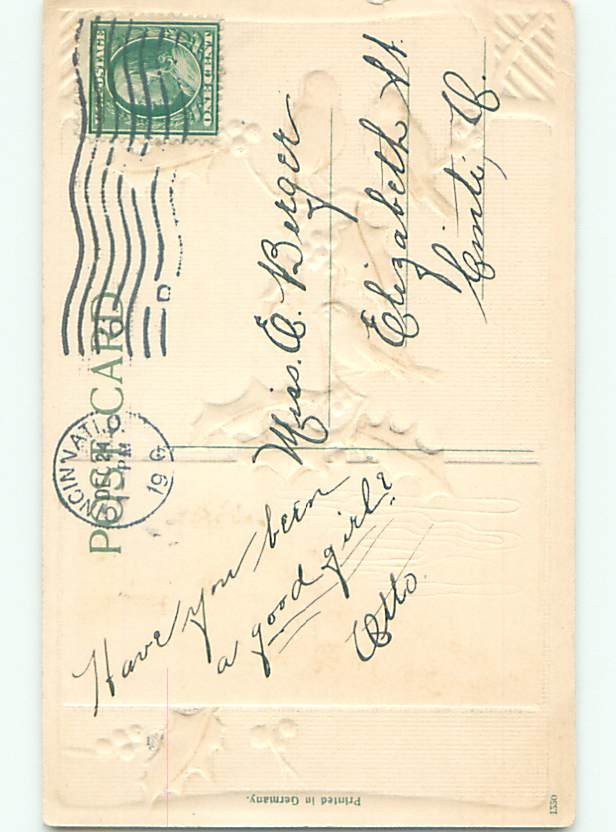 POST CARD
POSTAGE
ONE CENT
CINCINNATI, O
DEC 24
PM
19
Have you been
a good girl?
Otto.
Miss. E. Berger
Elizabeth St.
Cinti, O.
Printed in Germany.
1550